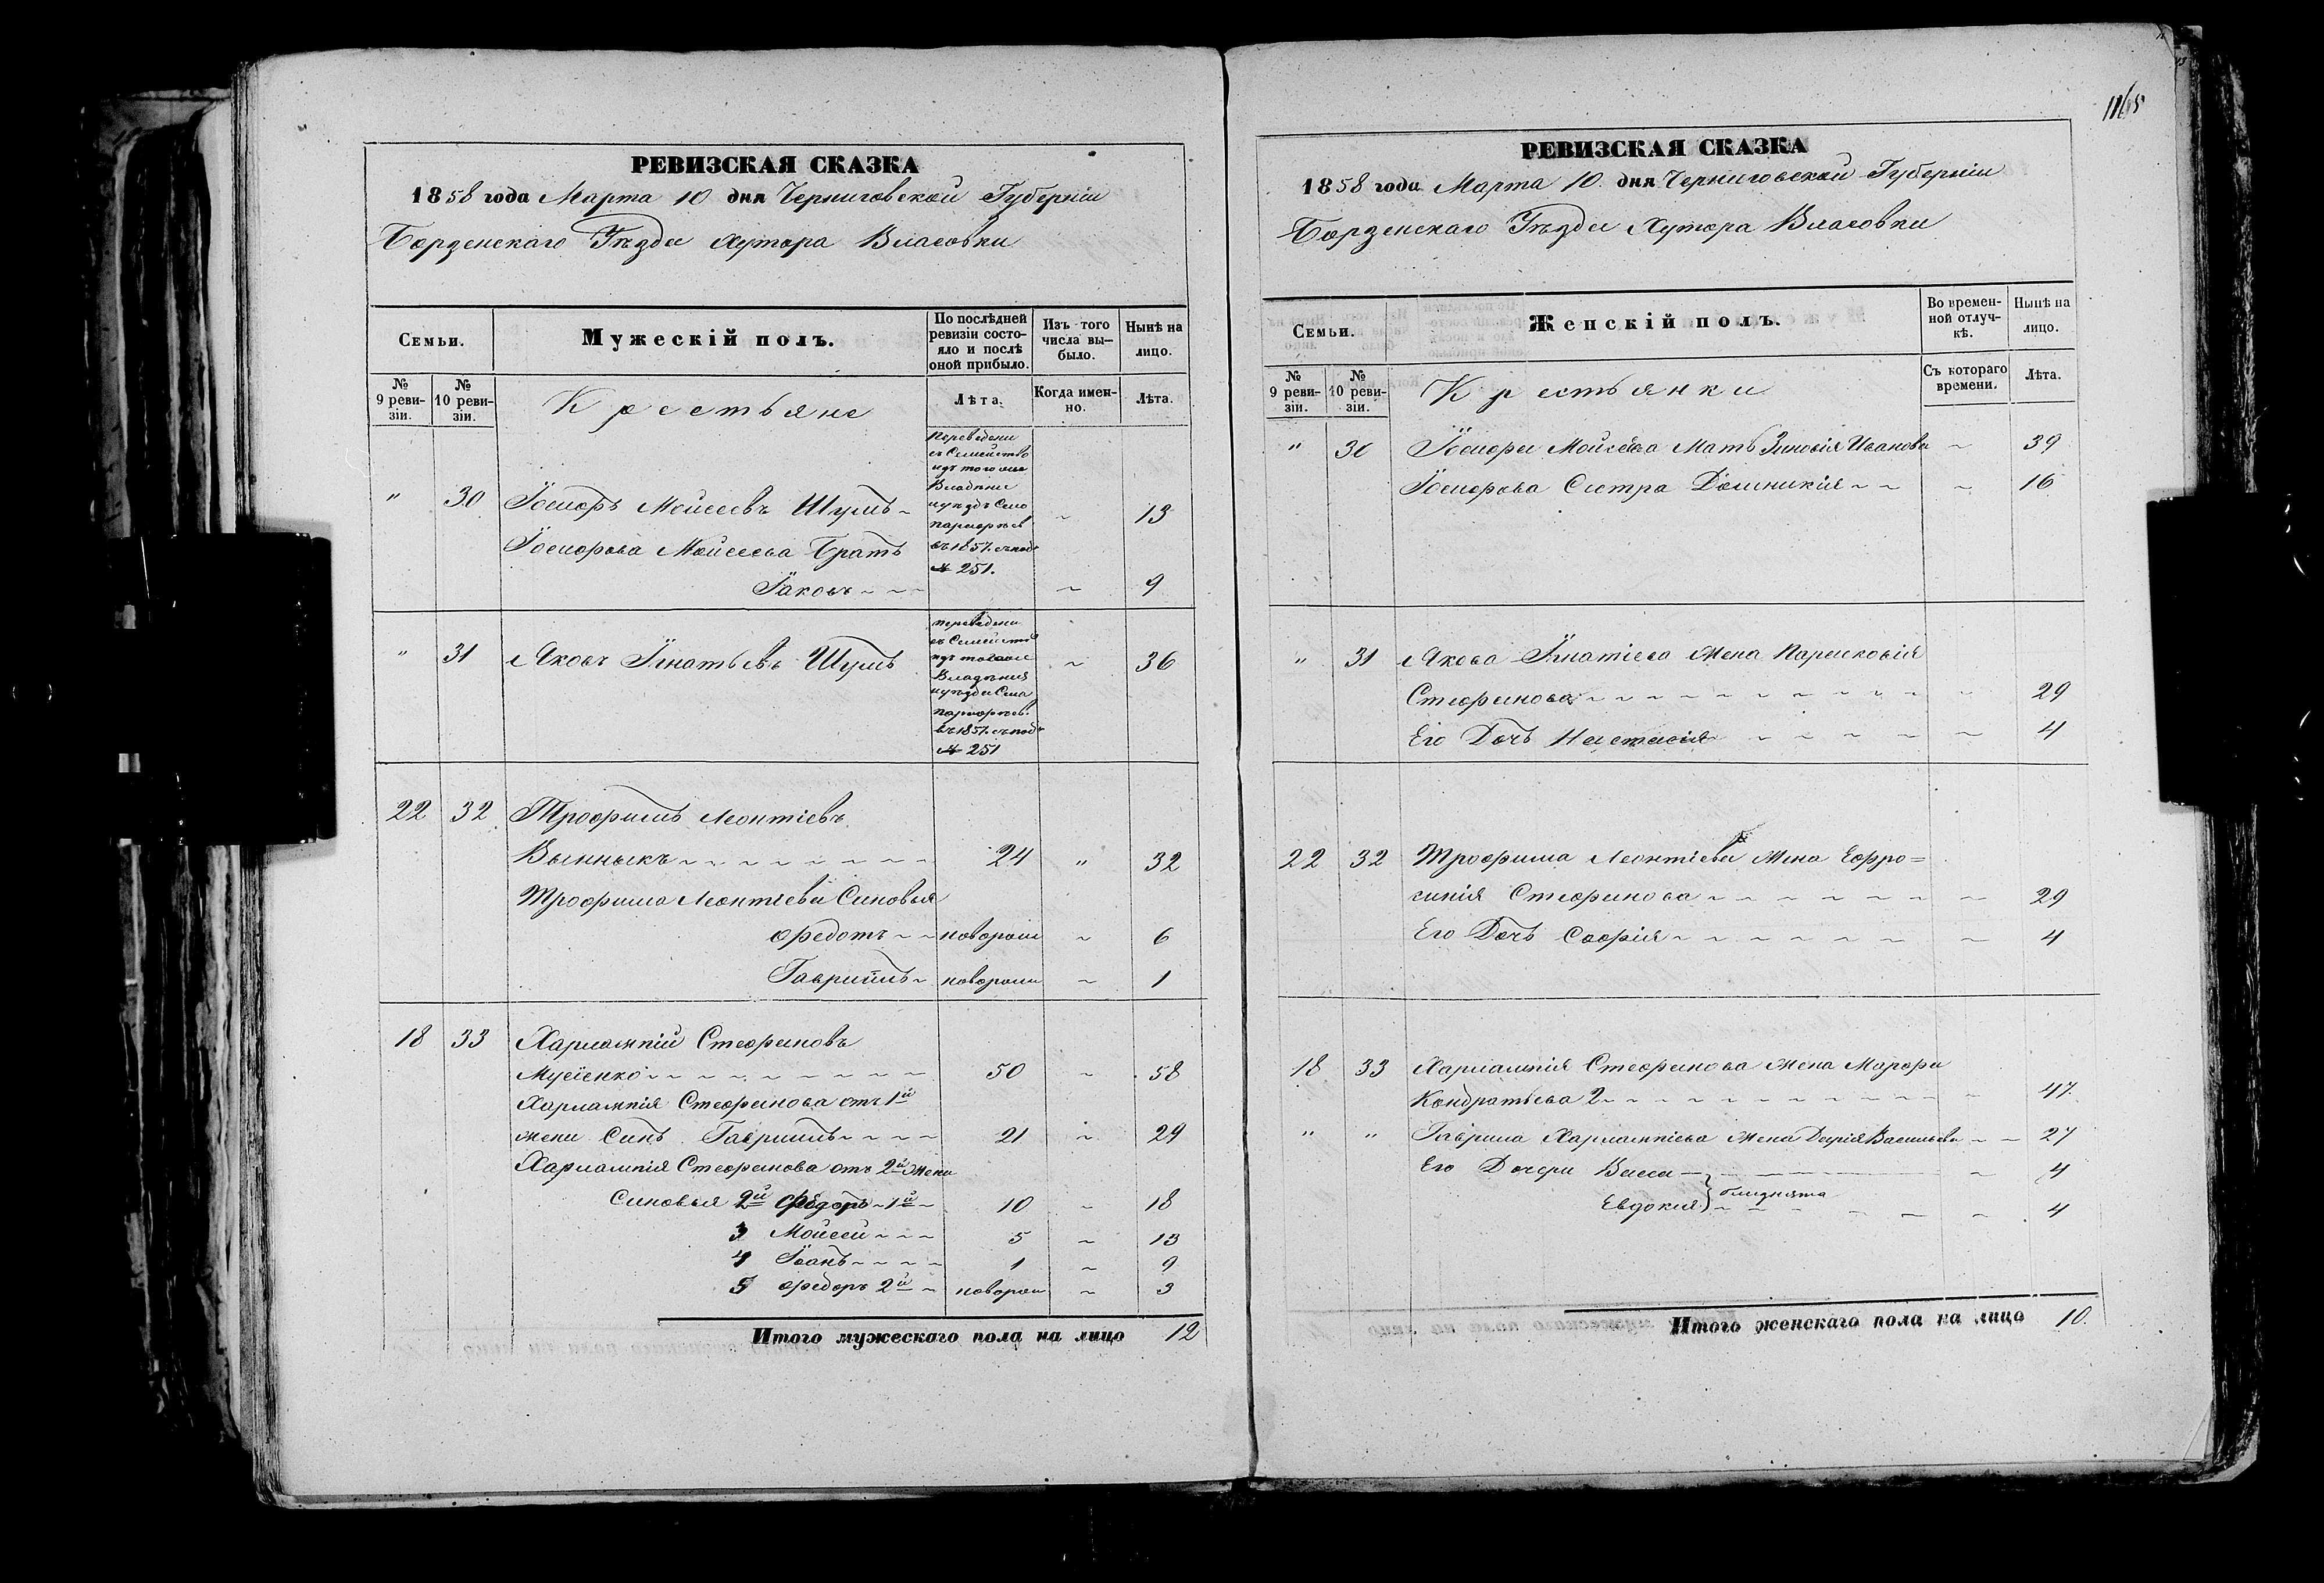 РЕВИЗСКАЯ СКАЗКА
1858 года Марта 10 дня Черниговской Губерніи
Борзенскаго Уѣзда Хутора Власовки
Семьи.
Мужескій полъ.
По послѣдней ревизіи состояло и послѣ оной прибыло.
Изъ того числа выбыло.
Нынѣ на лицо.
№ 9 ревизіи.
№ 10 ревизіи.
Крестьяне
Лѣта.
Когда именно.
Лѣта.
Переведены
съ Семейство
изъ того же
Владѣнія
" 30 Іосифъ Мойсеевъ Шумъ ~ 13
Іосифова Мойсеева Братъ
въ 1857. съ под
№ 251.
Іаковъ 9
переведены
съ Семейство
" 31 Яковъ Игнатьевъ Шумъ ~ 36
Владѣнія
въ 1857. съ под
№ 251
22 32 Трофимъ Леонтіевъ
Вынныкъ 24 " 32
Трофима Леонтіева Синовья
Федотъ новорож ~ 6
Гавриилъ новорож ~ 1
18 33 Харлампій Стефановъ
Мусіенко 50 ~ 58
Харлампія Стефанова отъ 1й
жени Синъ Гавриилъ 21 ~ 29
Харлампія Стефанова отъ 2й Жени
Синовья 2й Фёдоръ 1й 10 ~ 18
3 Мойсей 5 ~ 13
4 Іоанъ 1 ~ 9
5 Федоръ 2й новорож ~ 3
Итого мужескаго пола на лицо 12
1165
РЕВИЗСКАЯ СКАЗКА
1858 года Марта 10 дня Черниговской Губерніи
Борзенскаго Уѣзда Хутора Власовки
Семьи.
Женскій полъ.
Во временной отлучкѣ.
Нынѣ на лицо.
№ 9 ревизіи.
№ 10 ревизіи.
Крестьянки
Съ котораго времени.
Лѣта.
" 30 Іосифа Мойсеева Мать Зиновія Иванова ~ 39
Іосифова Сестра Домникія ~ 16
" 31 Якова Игнатіева Жена Парасковія
Стефанова 29
Его Дочь Настасія 4
22 32 Трофима Леонтіева Жена Ефро=
синія Стефанова 29
Его Дочь Софія 4
18 33 Харлампія Стефанова Жена Марфа
Кондратьева 2 47.
" " Гаврила Харлампіева Жена Дарія Васильева 27
Его Дочери Васса 4
близнята
Евдокия 4
Итого женскаго пола на лицо 10.